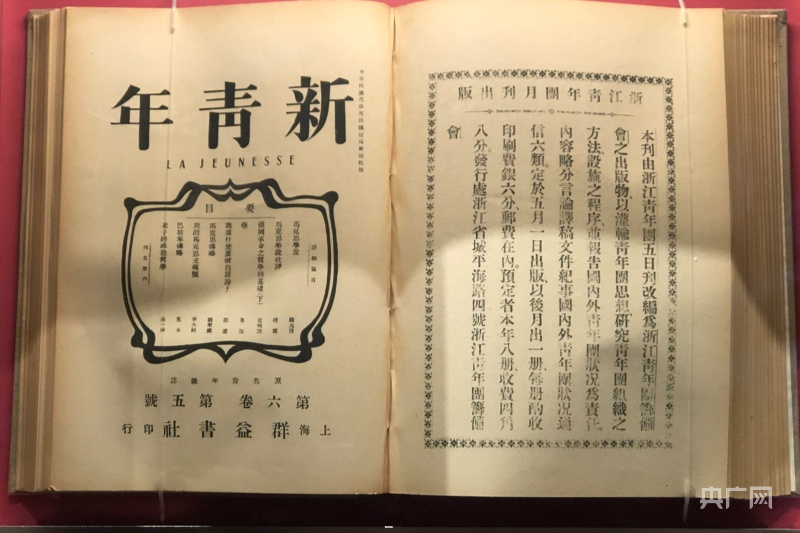 新青年
LA JEUNESSE
要目
馬克思學說
馬克思學說批評
俄國革命之哲學的基礎（下）
藥
我爲什麼要做白話詩？
馬克思傳略
我的馬克思主義觀
巴枯寧傳略
老子的政治哲學
原名青年雜誌
第六卷第五號
上海群益書社印行
浙江青年團月刊出版
本刊由浙江青年團五日刊改編爲浙江青年團籌備
會之出版物、以灌輸青年團思想、研究青年團組織之
方法、設施之程序、並報告國內外青年團狀况爲責任。
內容略分言論譯稿文件紀事國內外青年團狀况通
信六類。定於五月一日出版、以後月出一册、每册酌收
印刷費銀六分、郵費在內。預定者本年八册、收費四角
八分。發行處浙江省城平海路四號浙江青年團籌備
會
央广网